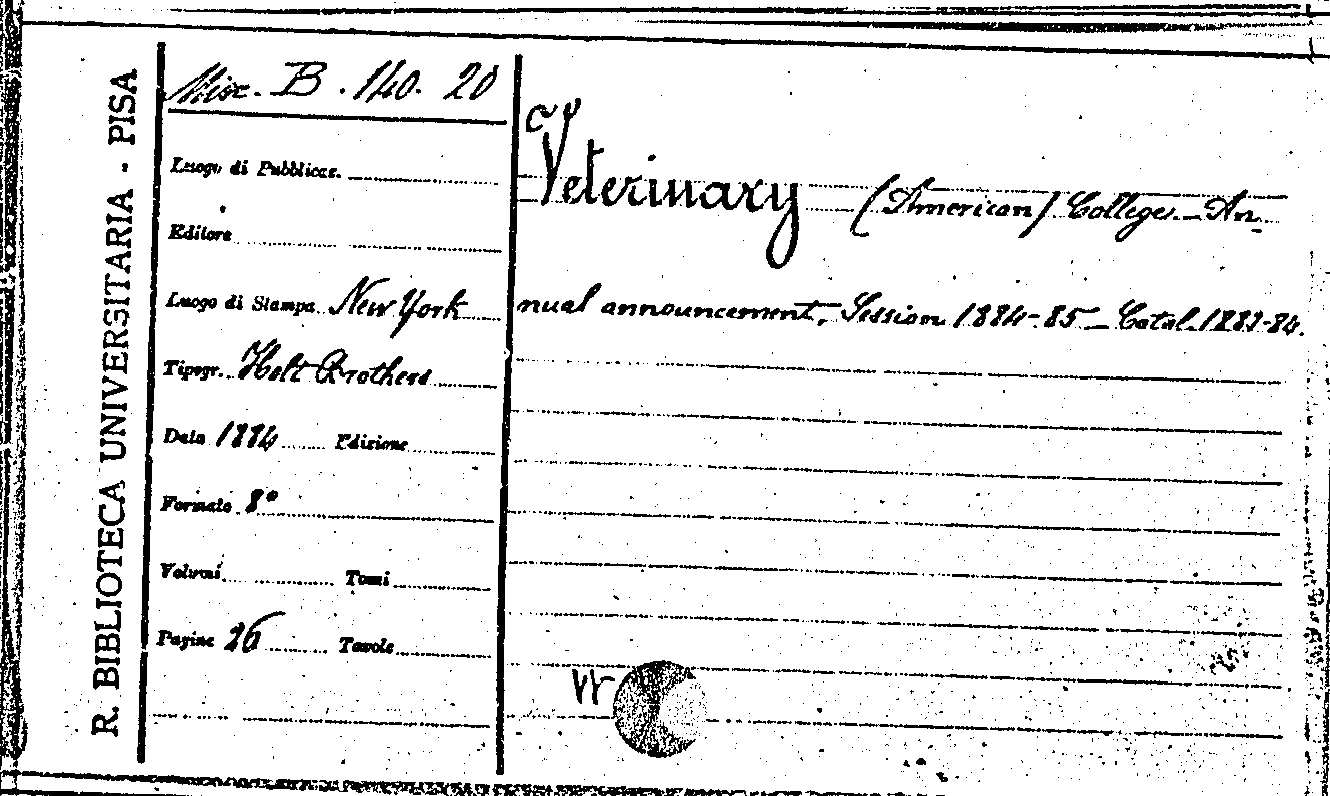 R. BIBLIOTECA UNIVERSITARIA - PISA
Misc. B. 140. 20
Luogo di Pubblicaz.
Editore
Luogo di Stampa New York
Tipogr. Holt Brothers
Data 1884 Edizione
Formato 8°
Volumi Tomi
Pagine 26 Tavole
Veterinary (American) College. - An-
nual announcement, Session 1884-85 - Catal. 1883-84.